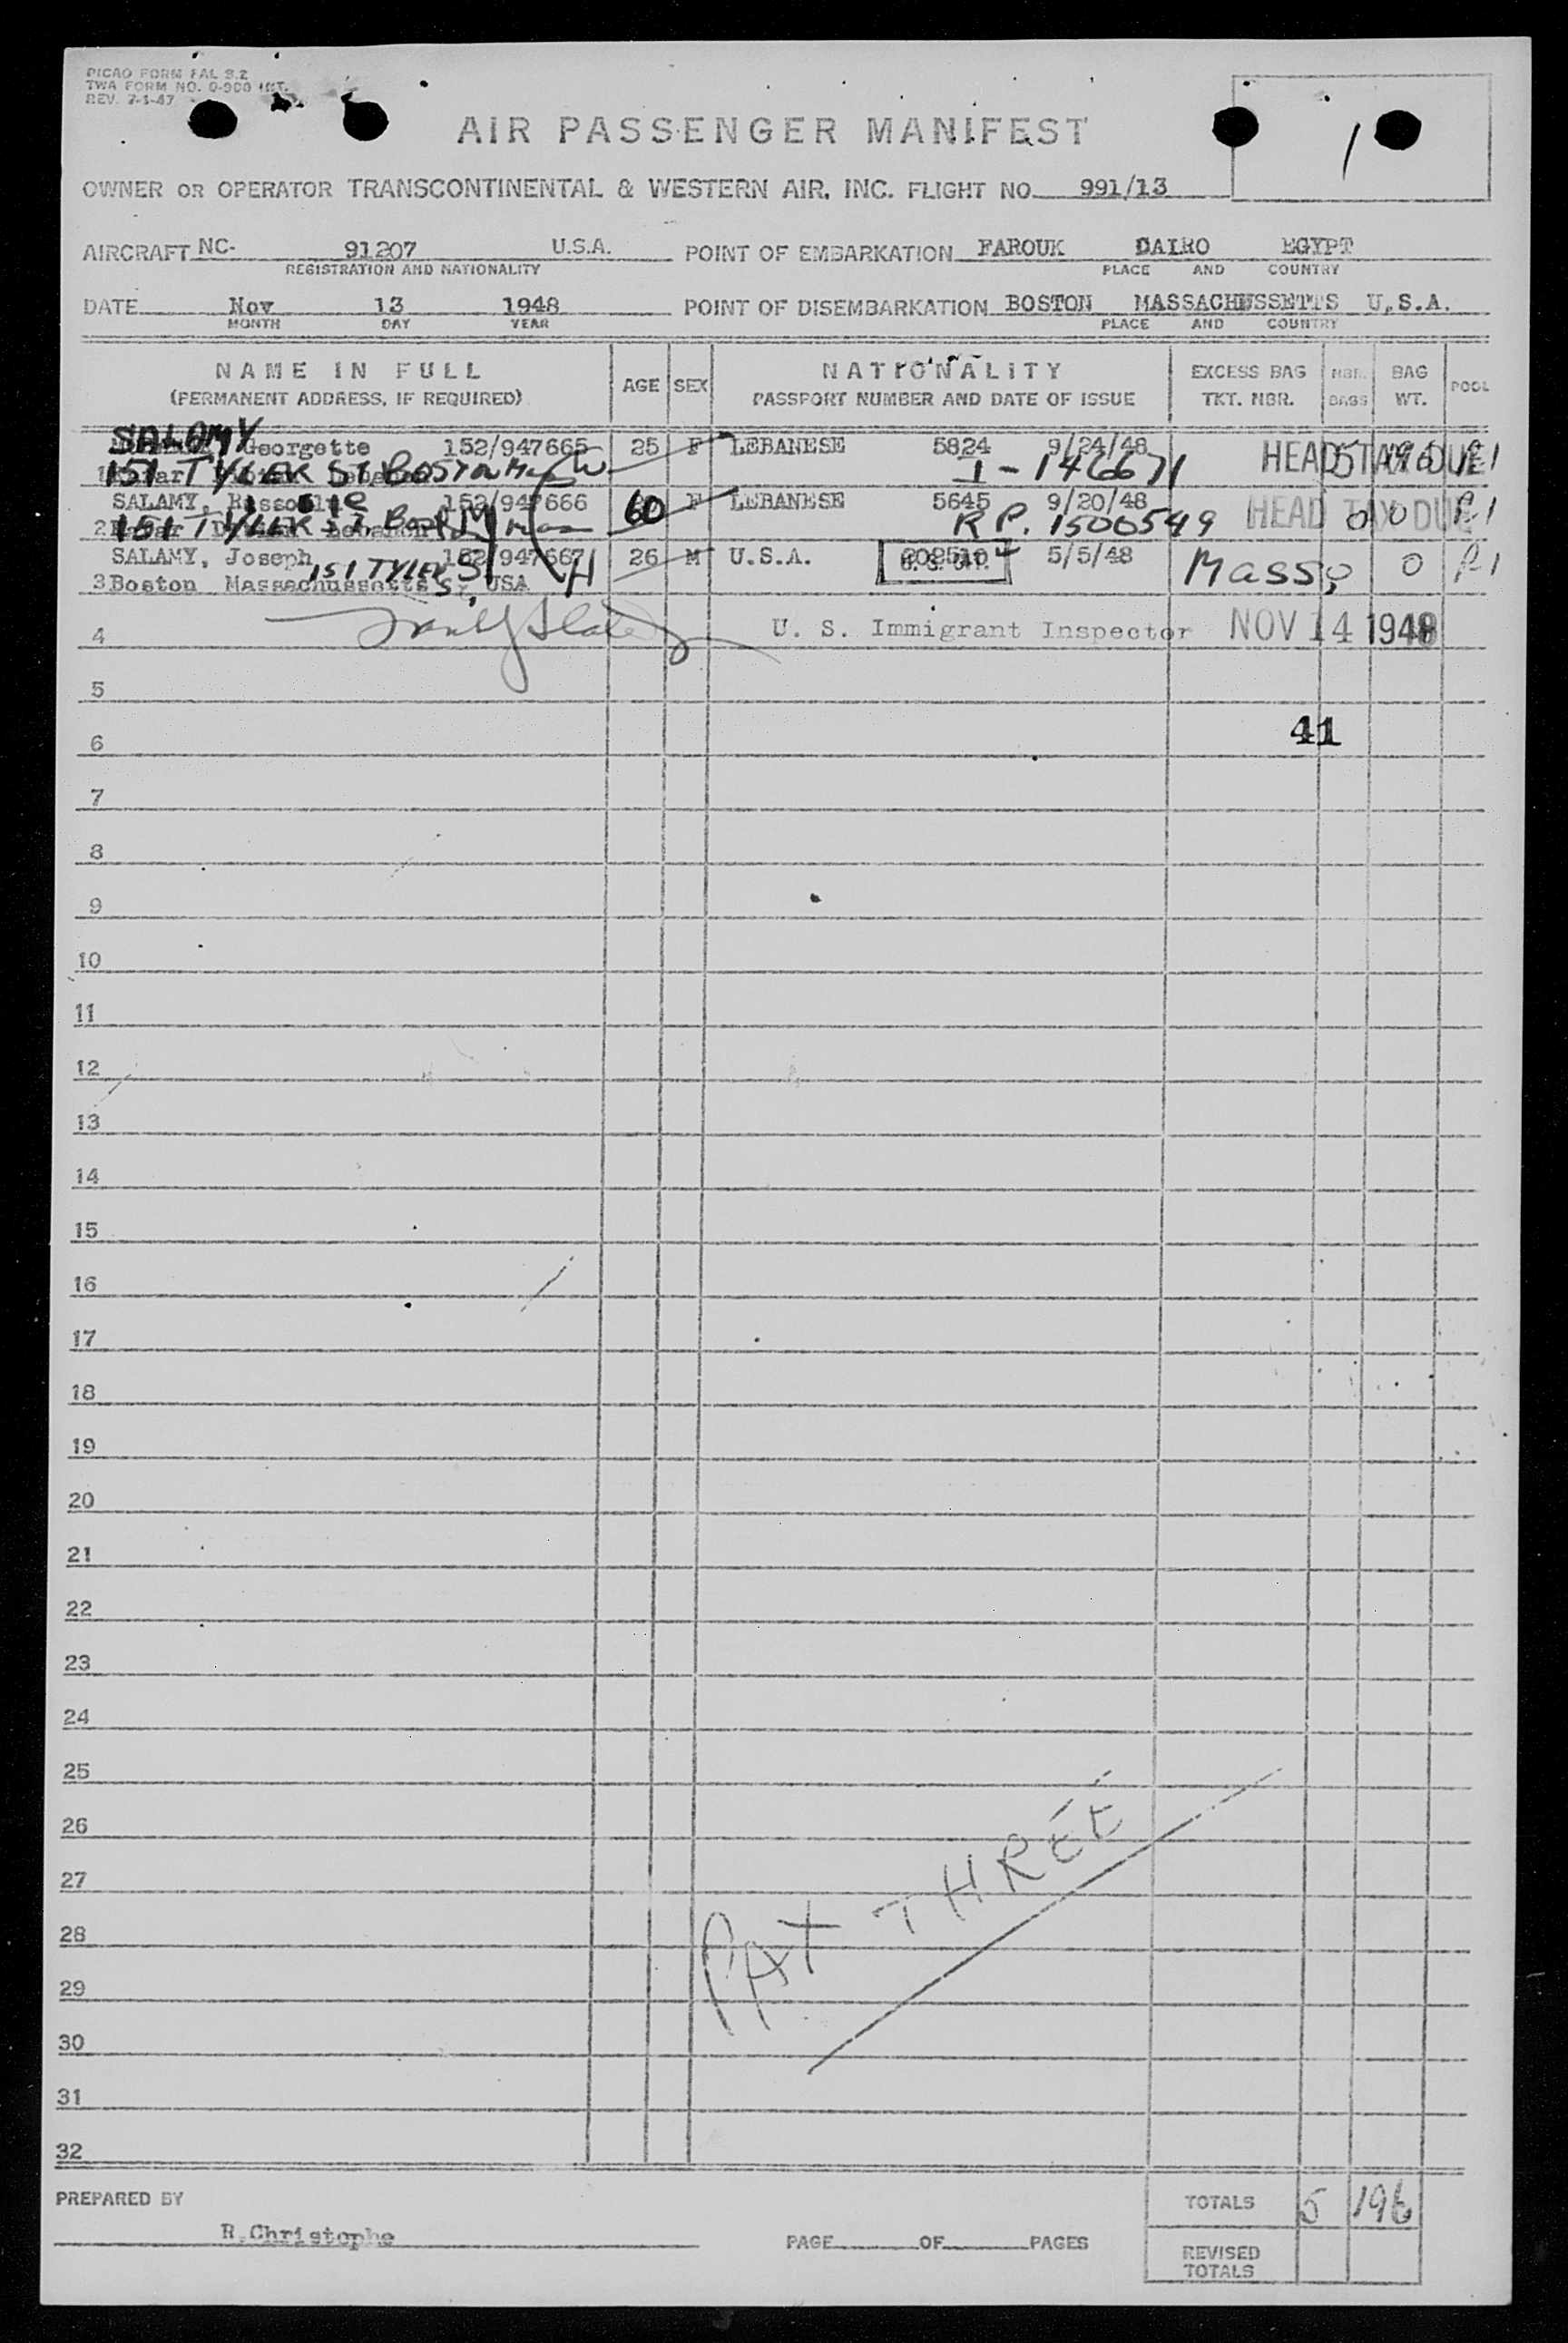 PICAO FORM FAL 3.2
TWA FORM NO. 0-900 INT.
REV. 7-1-47
AIR PASSENGER MANIFEST
1
OWNER OR OPERATOR TRANSCONTINENTAL & WESTERN AIR, INC. FLIGHT NO. 991/13
AIRCRAFT NC- 91207 U.S.A. POINT OF EMBARKATION FAROUK DAIRO EGYPT
REGISTRATION AND NATIONALITY PLACE AND COUNTRY
DATE Nov 13 1948 POINT OF DISEMBARKATION BOSTON MASSACHUSSETTS U.S.A.
MONTH DAY YEAR PLACE AND COUNTRY
NAME IN FULL AGE SEX NATIONALITY EXCESS BAG NBR. BAG POOL
(PERMANENT ADDRESS, IF REQUIRED) PASSPORT NUMBER AND DATE OF ISSUE TKT. NBR. BAGS WT.
SALAMY Georgette 152/947665 25 F LEBANESE 5824 9/24/48 HEAD TAX DUE 5 196 R1
1 151 TYLER ST BOSTON Mass W I-146671
SALAMY, 152/947666 60 F LEBANESE 5645 9/20/48 HEAD TAX DUE 0 0 R1
2 151 TYLER ST Boston Mass M R.P. 1500549
SALAMY, Joseph 152/947667 26 M U.S.A. 5/5/48 Mass. 0 0 R1
3 Boston Massachussetts USA 151 TYLER ST H
4 U. S. Immigrant Inspector NOV 14 1948
5
6 41
7
8
9
10
11
12
13
14
15
16
17
18
19
20
21
22
23
24
25
26
27
28
29
30
31
32
PAX THREE
PREPARED BY TOTALS 5 196
R.Christophe PAGE OF PAGES REVISED
TOTALS